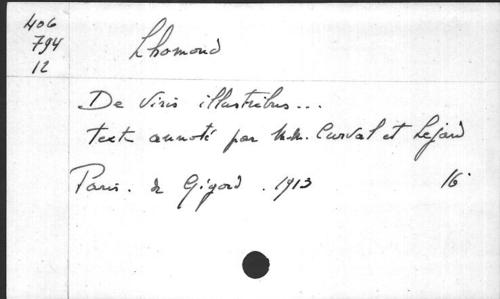 406
794
12
Lhomond
De Viris illustribus...
texte annoté par M.M. Curval et Lejard
Paris. de Gigord. 1913 16°